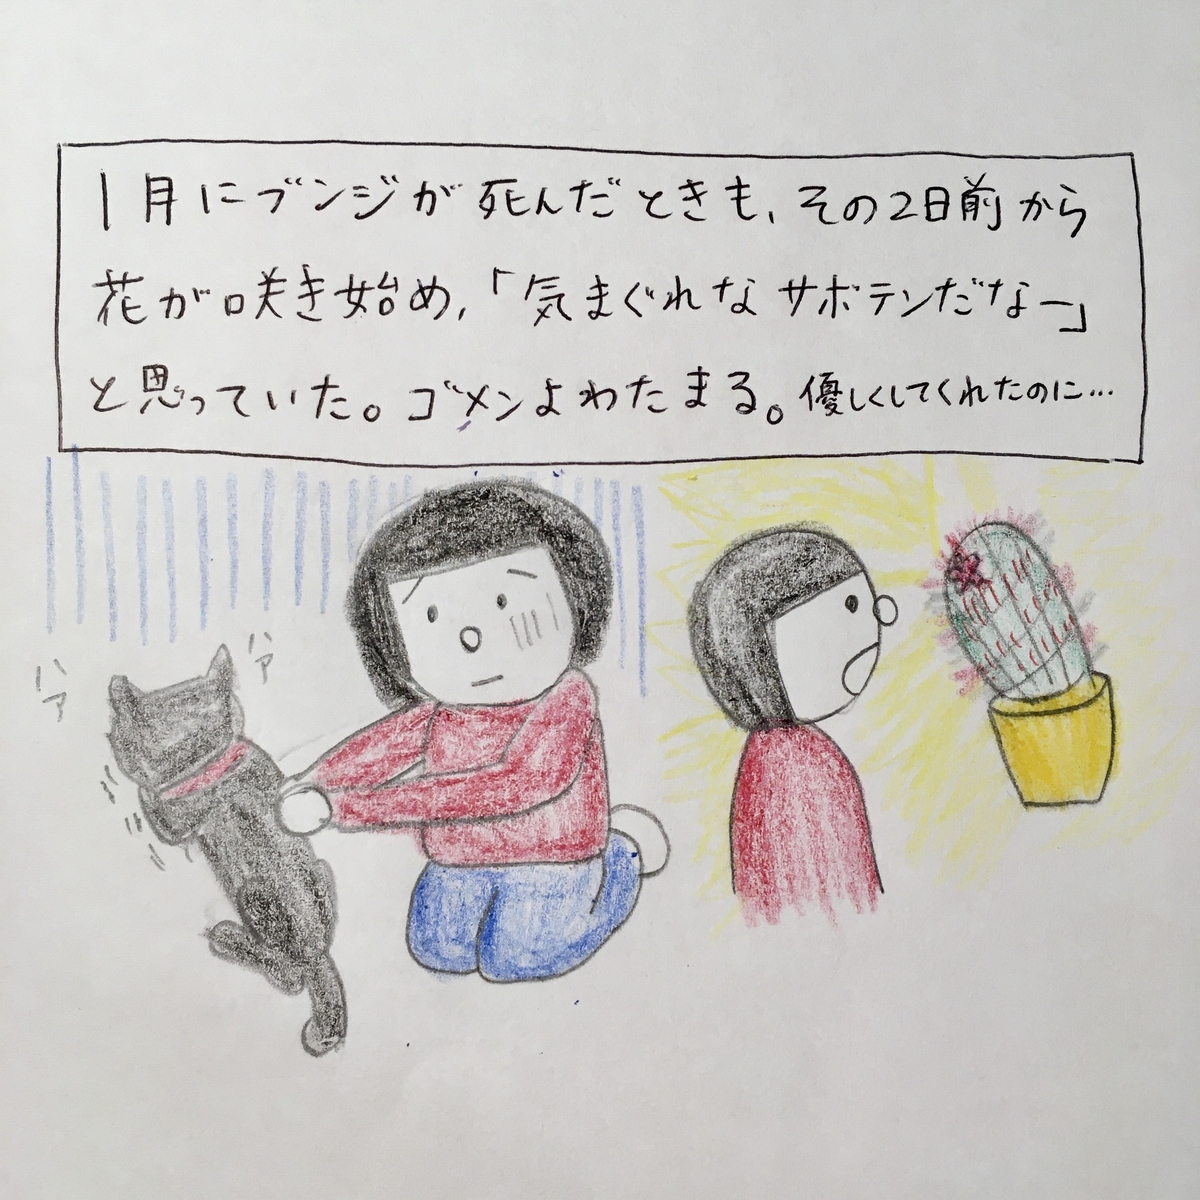 1月にブンジが死んだときも、その2日前から
花が咲き始め、「気まぐれなサボテンだなー」
と思っていた。ゴメンよわたまる。優しくしてくれたのに…
ハァ
ハァ